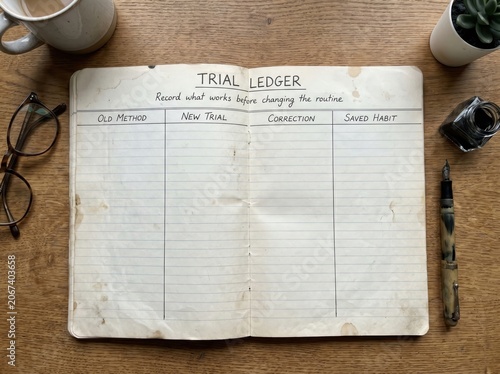 TRIAL LEDGER
Record what works before changing the routine
OLD METHOD NEW TRIAL CORRECTION SAVED HABIT
Adobe Stock | #2067403658